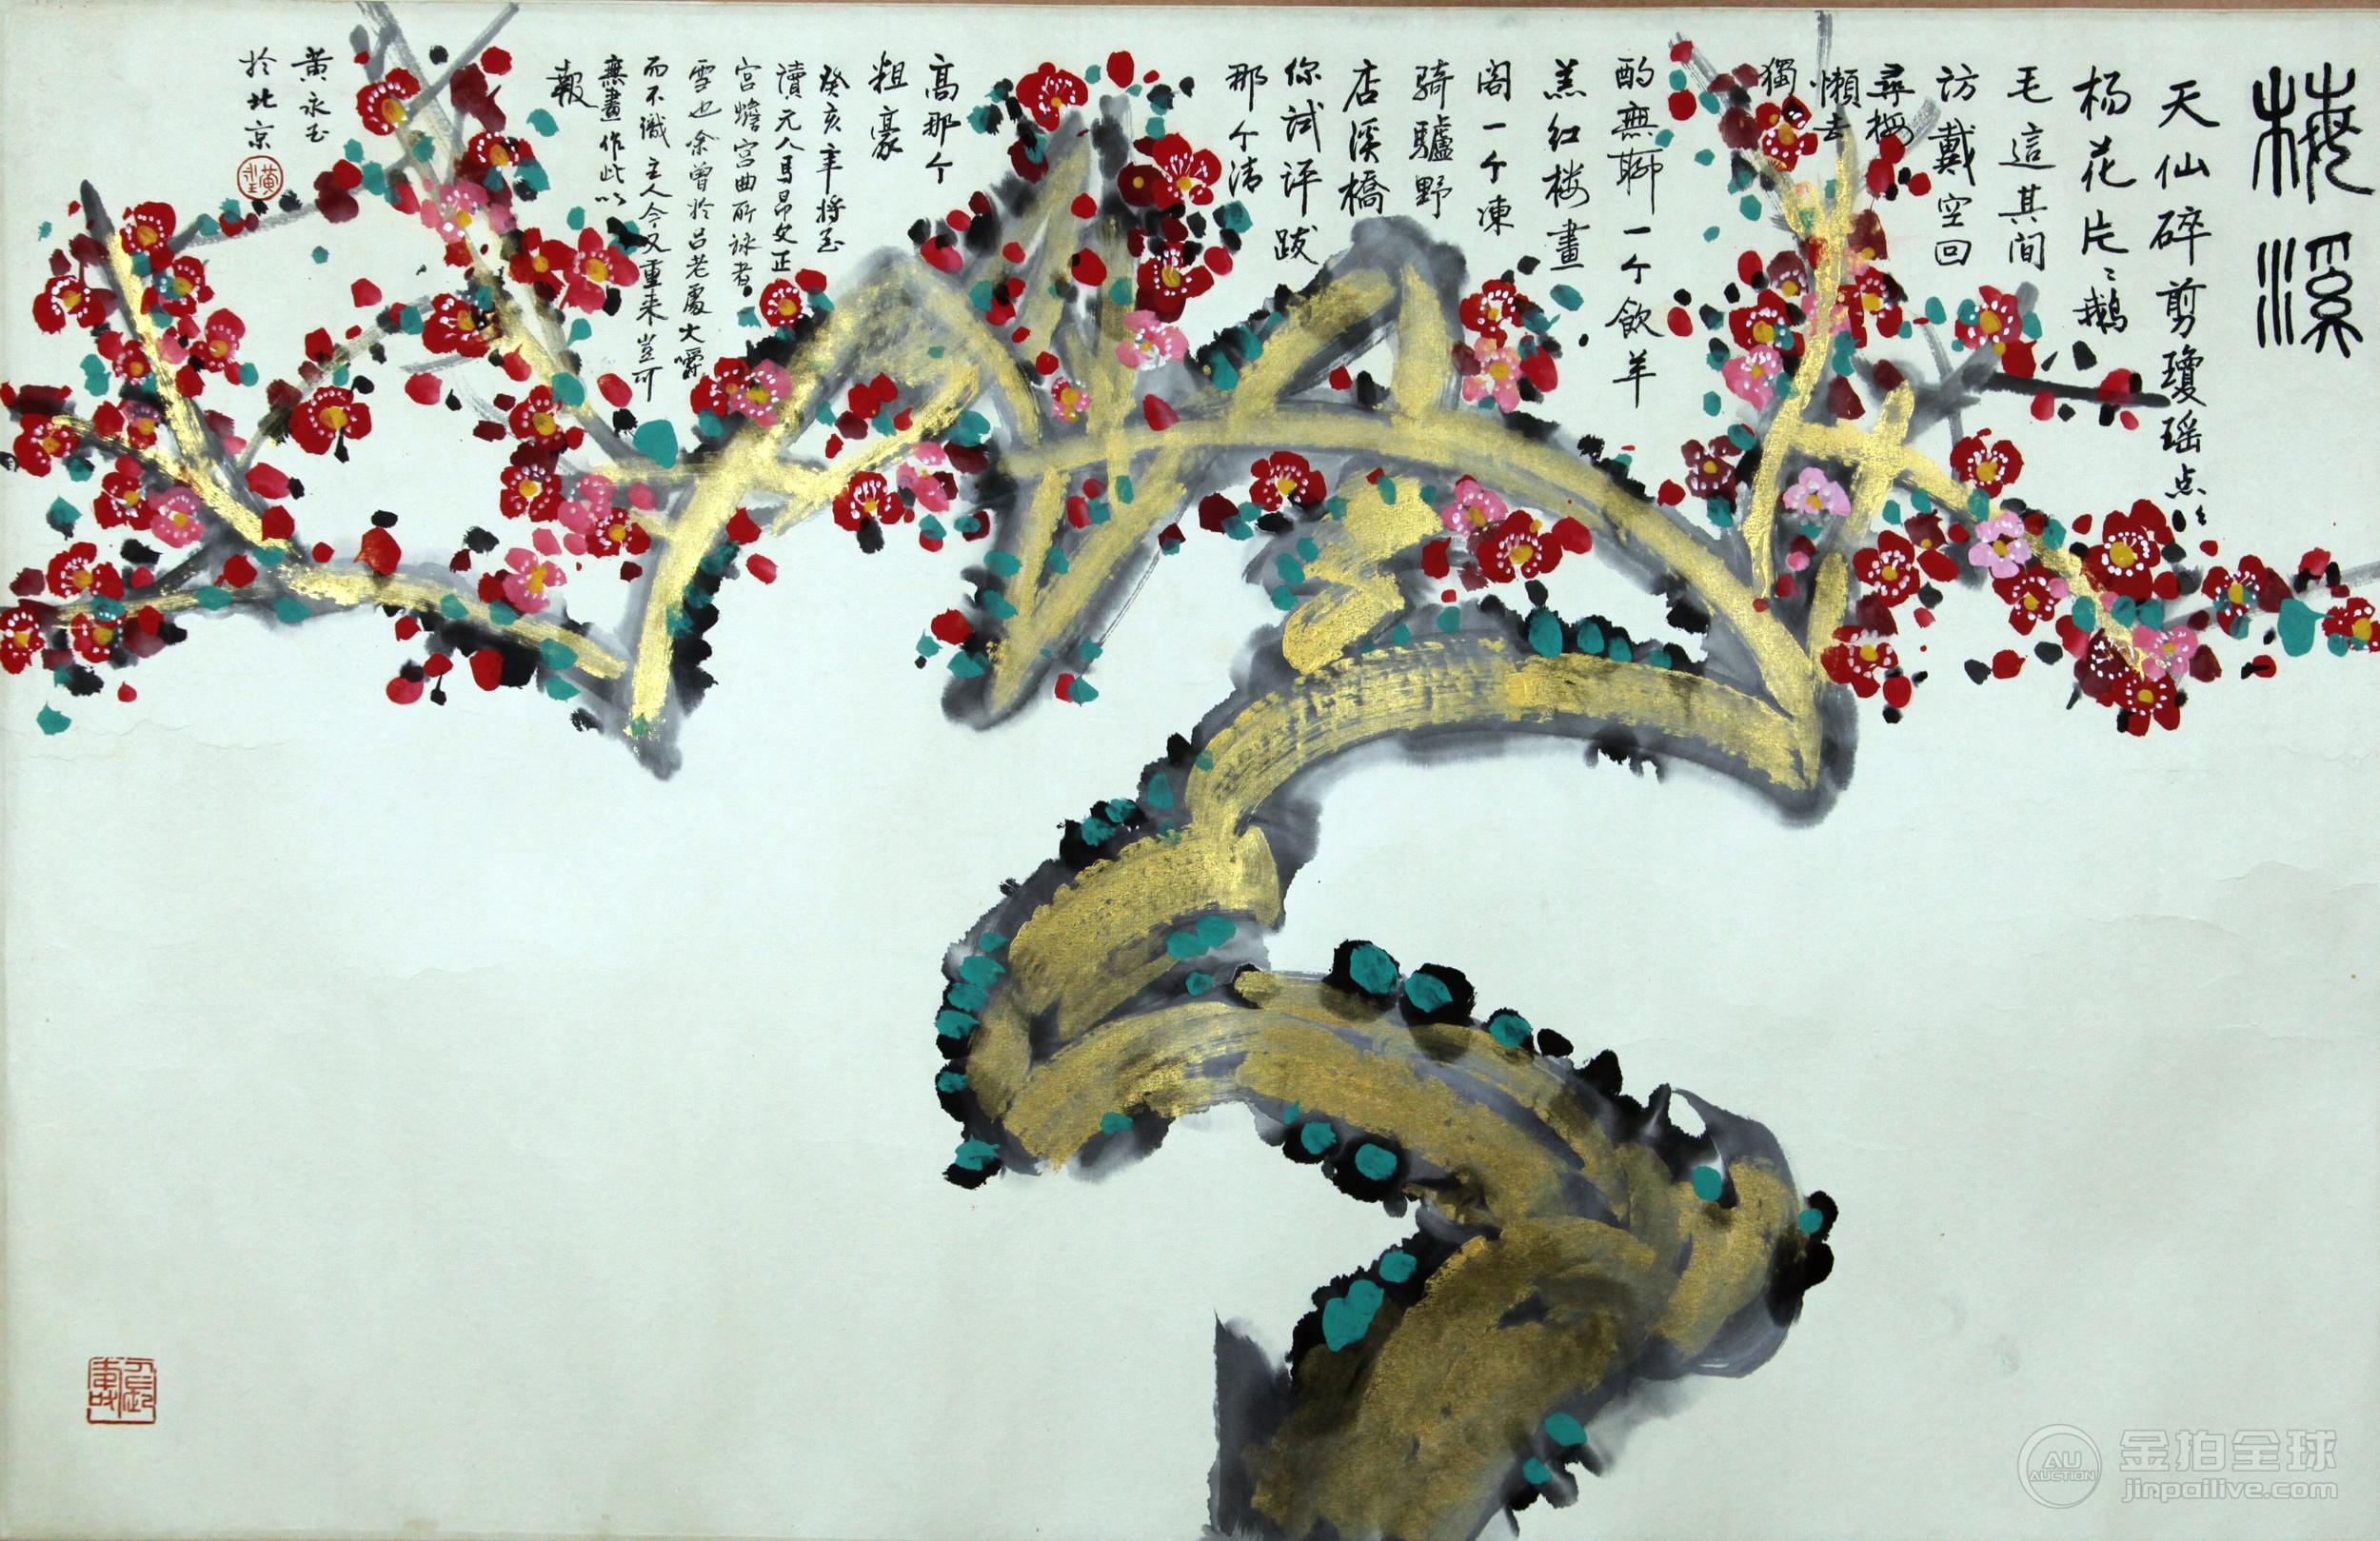 梅溪
天仙碎剪瓊瑶点〻
杨花片〻鵝
毛這其间
訪戴空回
尋梅
懒去
獨
酌無聊一个飲羊
羔红楼畫
阁一个凍
骑驢野
店溪橋
你試评跋
那个清
高那个
粗豪
癸亥年将至
讀元人馬昂父正
宫蟾宫曲所詠者
雪也余曾於吕老處大嚼
而不識主人今又重来豈可
無畫作此以
報
黄永玉
於北京
金拍全球
AU
AUCTION
jinpailive.com